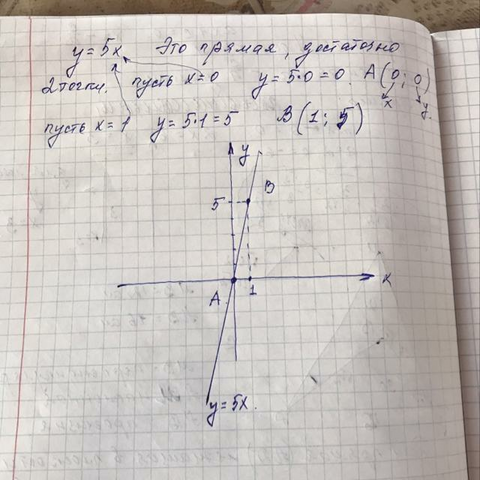 y = 5x Это прямая, достаточно
2 точки. пусть x = 0 y = 5·0 = 0. A(0; 0)
x y
пусть x = 1 y = 5·1 = 5 B(1; 5)
y
B
5
A 1 x
y = 5x.